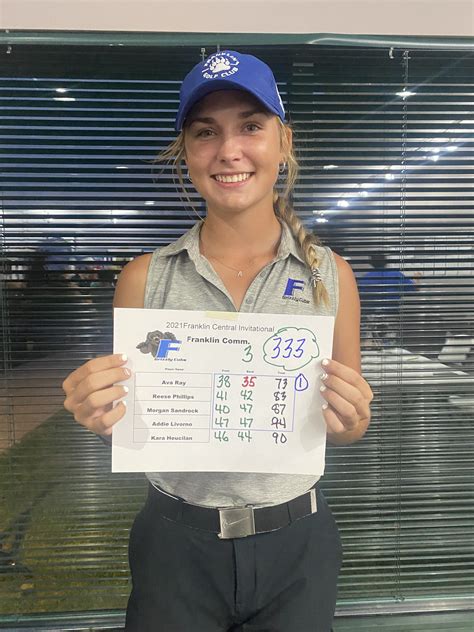 FRANKLIN
GOLF CLUB
F
Grizzly Cubs
2021Franklin Central Invitational
F
Grizzly Cubs
Franklin Comm.
3
333
Ava Ray 38 35 73 1
Reese Phillips 41 42 83
Morgan Sandrock 40 47 87
Addie Livorno 47 47 94
46 44 90